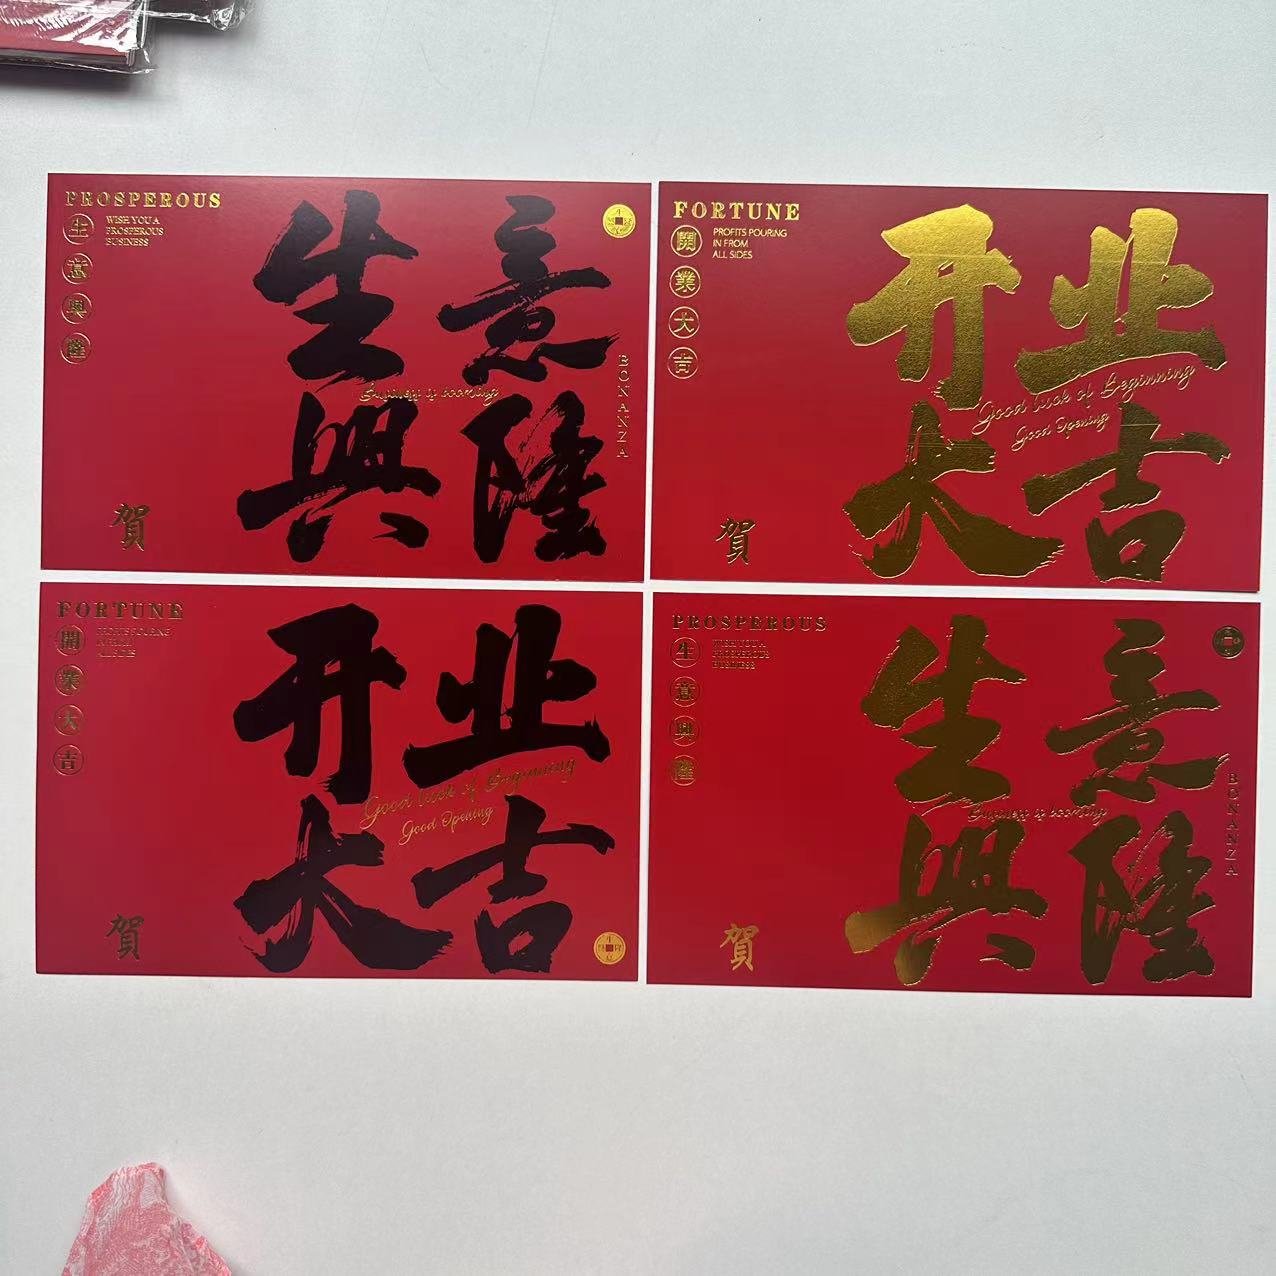 PROSPEROUS
生意興隆
WISH YOU A
PROSPEROUS
BUSINESS
生意
興隆
Business is booming
BONANZA
賀
FORTUNE
開業大吉
PROFITS POURING
IN FROM
ALL SIDES
开业
大吉
Good luck of Beginning
Good Opening
賀
FORTUNE
開業大吉
PROFITS POURING
IN FROM
ALL SIDES
开业
大吉
Good luck of Beginning
Good Opening
賀
PROSPEROUS
生意興隆
WISH YOU A
PROSPEROUS
BUSINESS
生意
興隆
Business is booming
BONANZA
賀